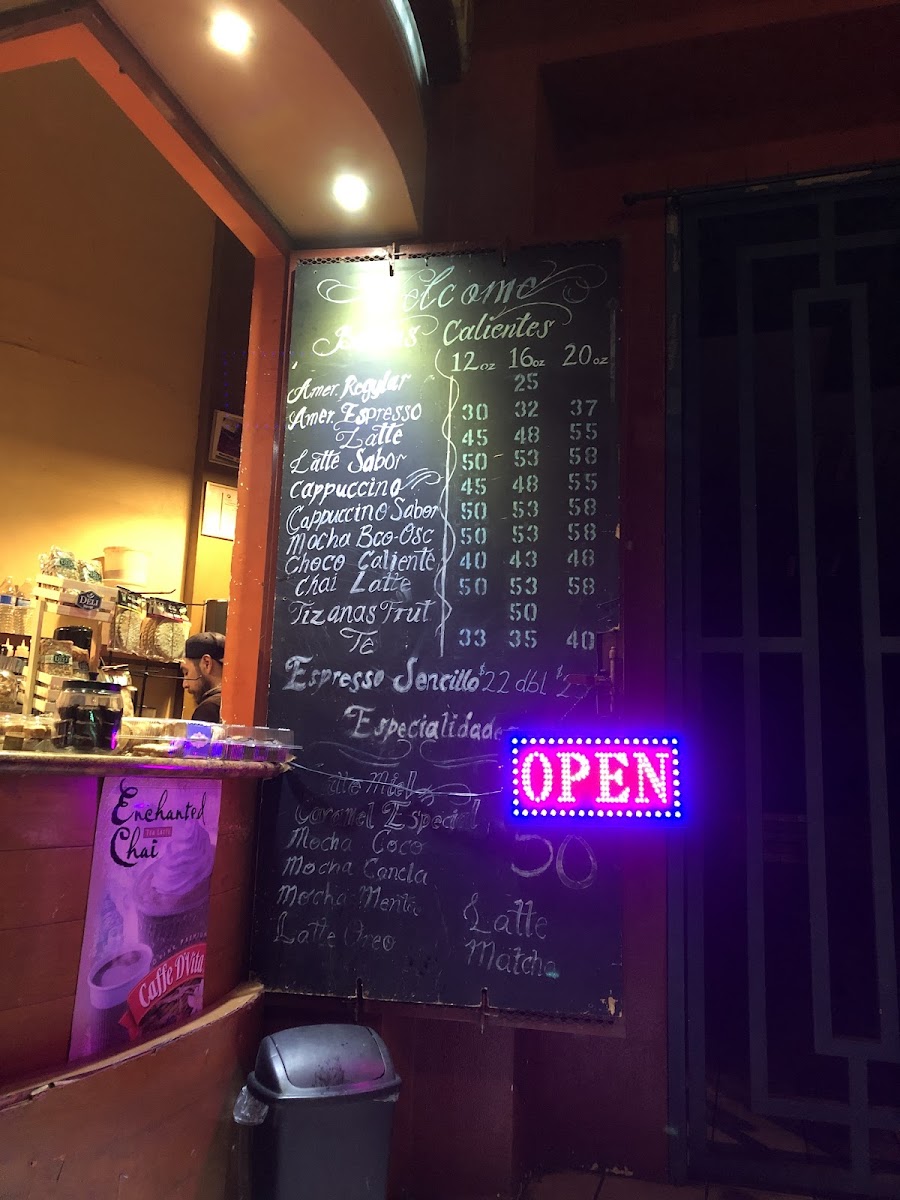 Welcome
Calientes
12oz 16oz 20oz
Amer. Regular 25
Amer. Espresso 30 32 37
Latte 45 48 55
Latte Sabor 50 53 58
Cappuccino 45 48 55
Cappuccino Sabor 50 53 58
Mocha Bco-Osc 50 53 58
Choco Caliente 40 43 48
Chai Latte 50 53 58
Tizanas Frut 50
Té 33 35 40
Espresso Sencillo $22 dbl
Especialidades
OPEN
Latte Miel
Caramel Especial
Mocha Coco 50
Mocha Canela
Mocha Menta
Latte Oreo
Latte
Matcha
DELI
Enchanted
Chai
Caffe D'Vita